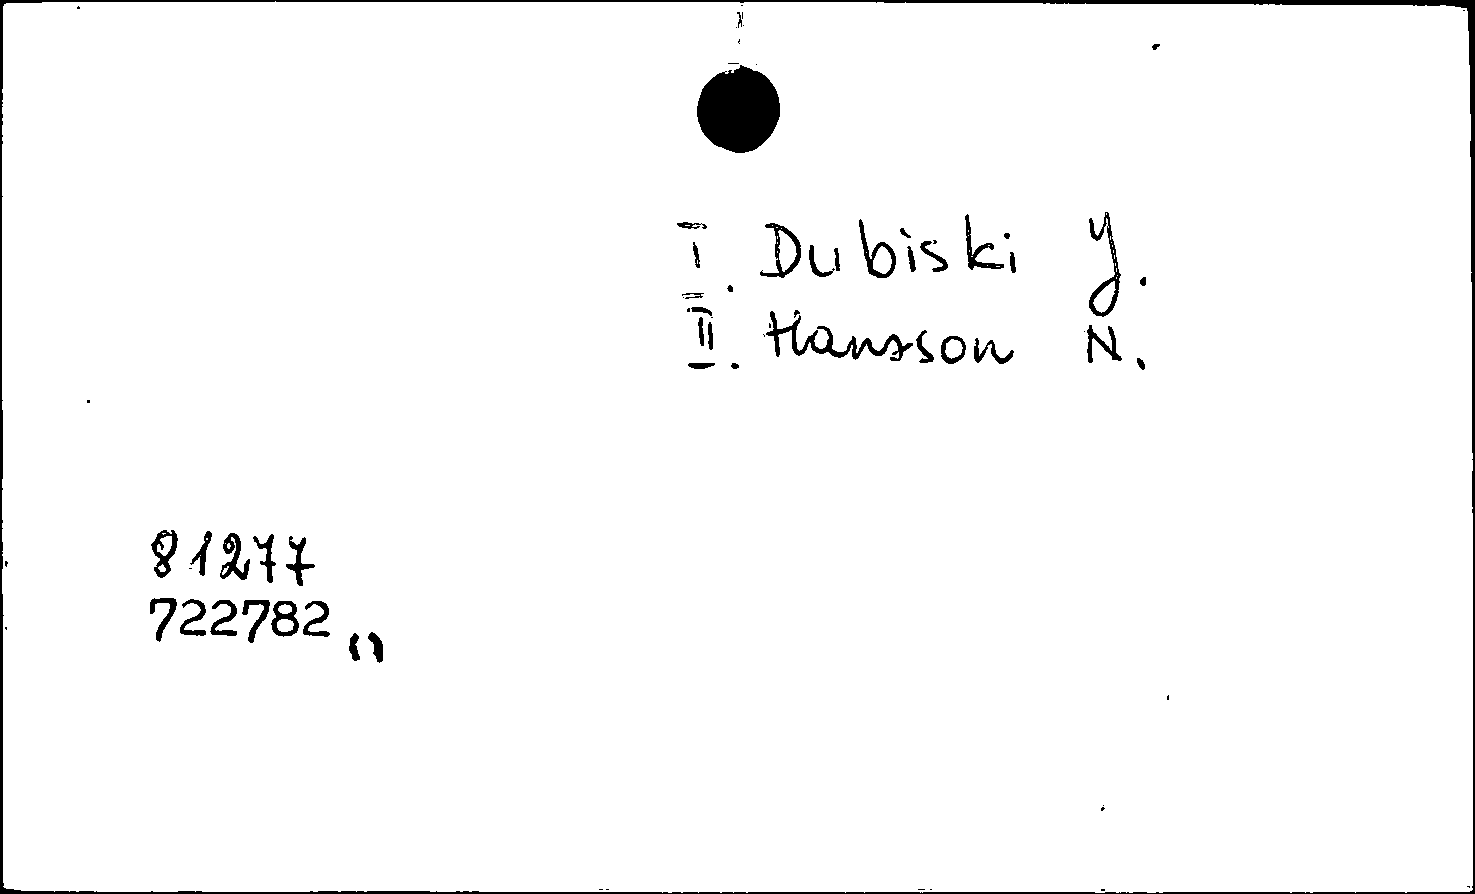 I. Dubiski Y.
II. Hansson N.
81277
722782